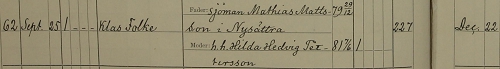 Fader: sjöman Mathias Matts- 79 29/12
62 Sept. 25 1 - - - Klas Folke son i Nysättra 227 Dec. 22
Moder: h.h. Hilda Hedvig Pet- 81 7/6 1
tersson